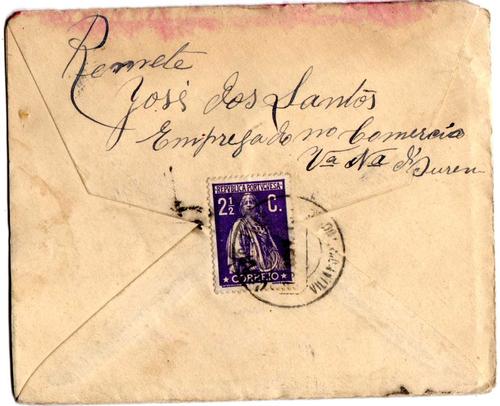 Remete
José dos Santos
Empregado no Comercio
Vª Nª d'Ourem
REPUBLICA PORTUGUESA
2½ C.
CORREIO